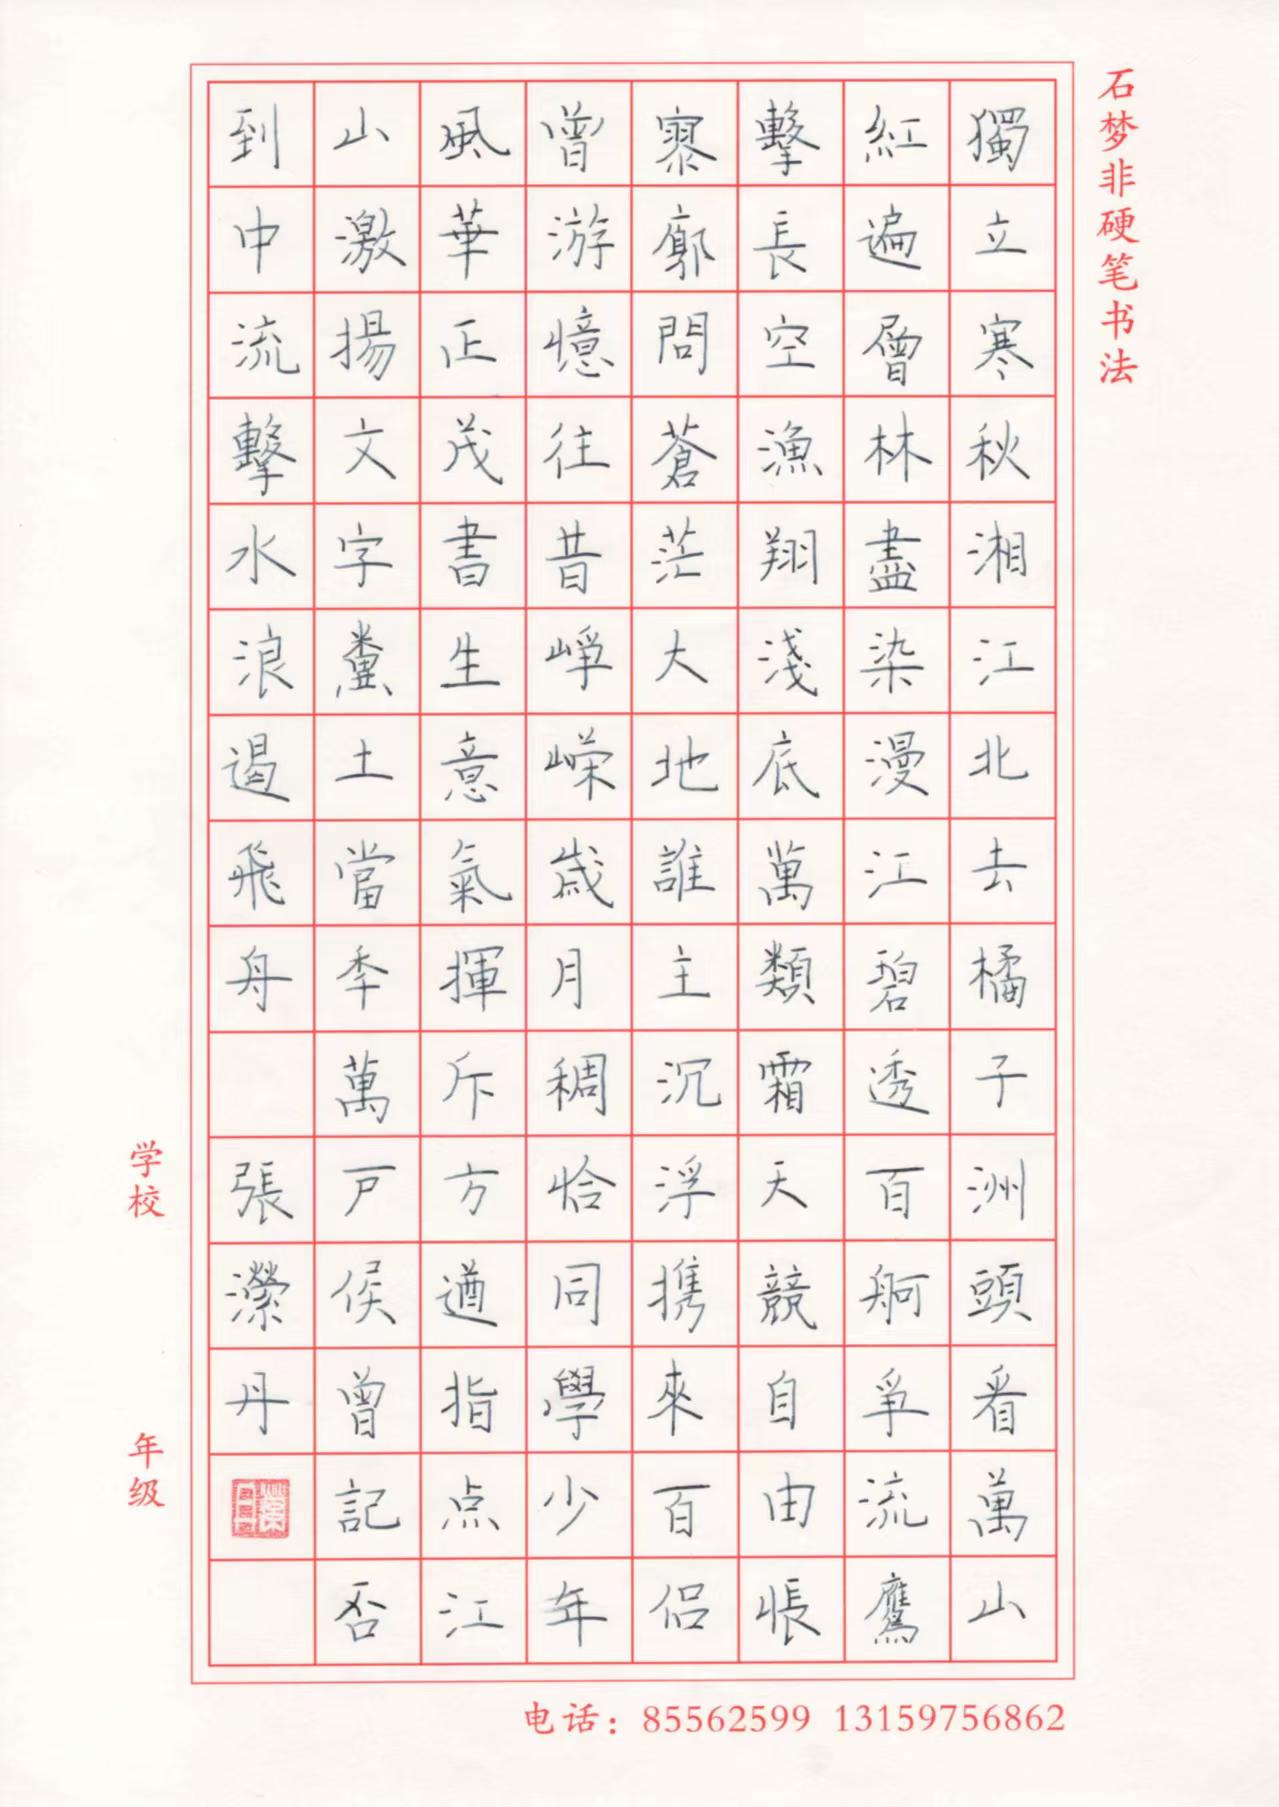 石梦非硬笔书法
獨立寒秋湘江北去橘子洲頭看萬山
紅遍層林盡染漫江碧透百舸爭流鷹
擊長空漁翔淺底萬類霜天競自由悵
寥廓問蒼茫大地誰主沉浮携來百侣
曾游憶往昔崢嶸歲月稠恰同學少年
風華正茂書生意氣揮斥方遒指点江
山激揚文字糞土當秊萬戶侯曾記否
到中流擊水浪遏飛舟 張瀠丹
学校 年级
电话：85562599 13159756862